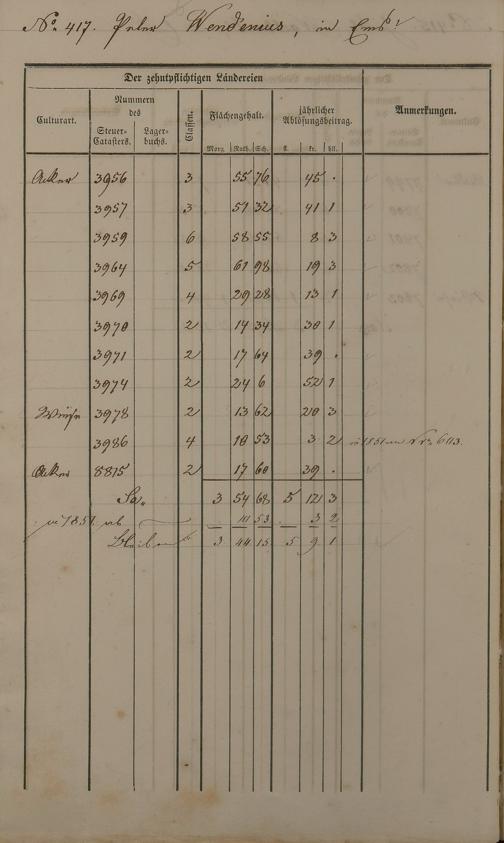 No. 417. Peter Wendenius, in Ems.
Der zehntpflichtigen Ländereien
Culturart.
Nummern des
Steuer-Catasters.
Lager-buchs.
Classen.
Flächengehalt.
Morg. Ruth. Sch.
jährlicher Ablösungsbeitrag.
fl. kr. hll.
Anmerkungen.
Acker 3956 3 55 76 45 .
3957 3 51 32 41 1
3959 6 58 55 8 3
3964 5 61 98 19 3
3969 4 29 28 13 1
3970 2 14 34 30 1
3971 2 17 64 39 .
3974 2 24 6 52 1
Wiese 3978 2 13 62 20 3
3986 4 10 53 3 2 1851 No. 603.
Acker 8815 2 17 60 39 .
Sa. 3 54 68 5 12 3
1851 ab 10 53 3 2
bleiben 3 44 15 5 9 1